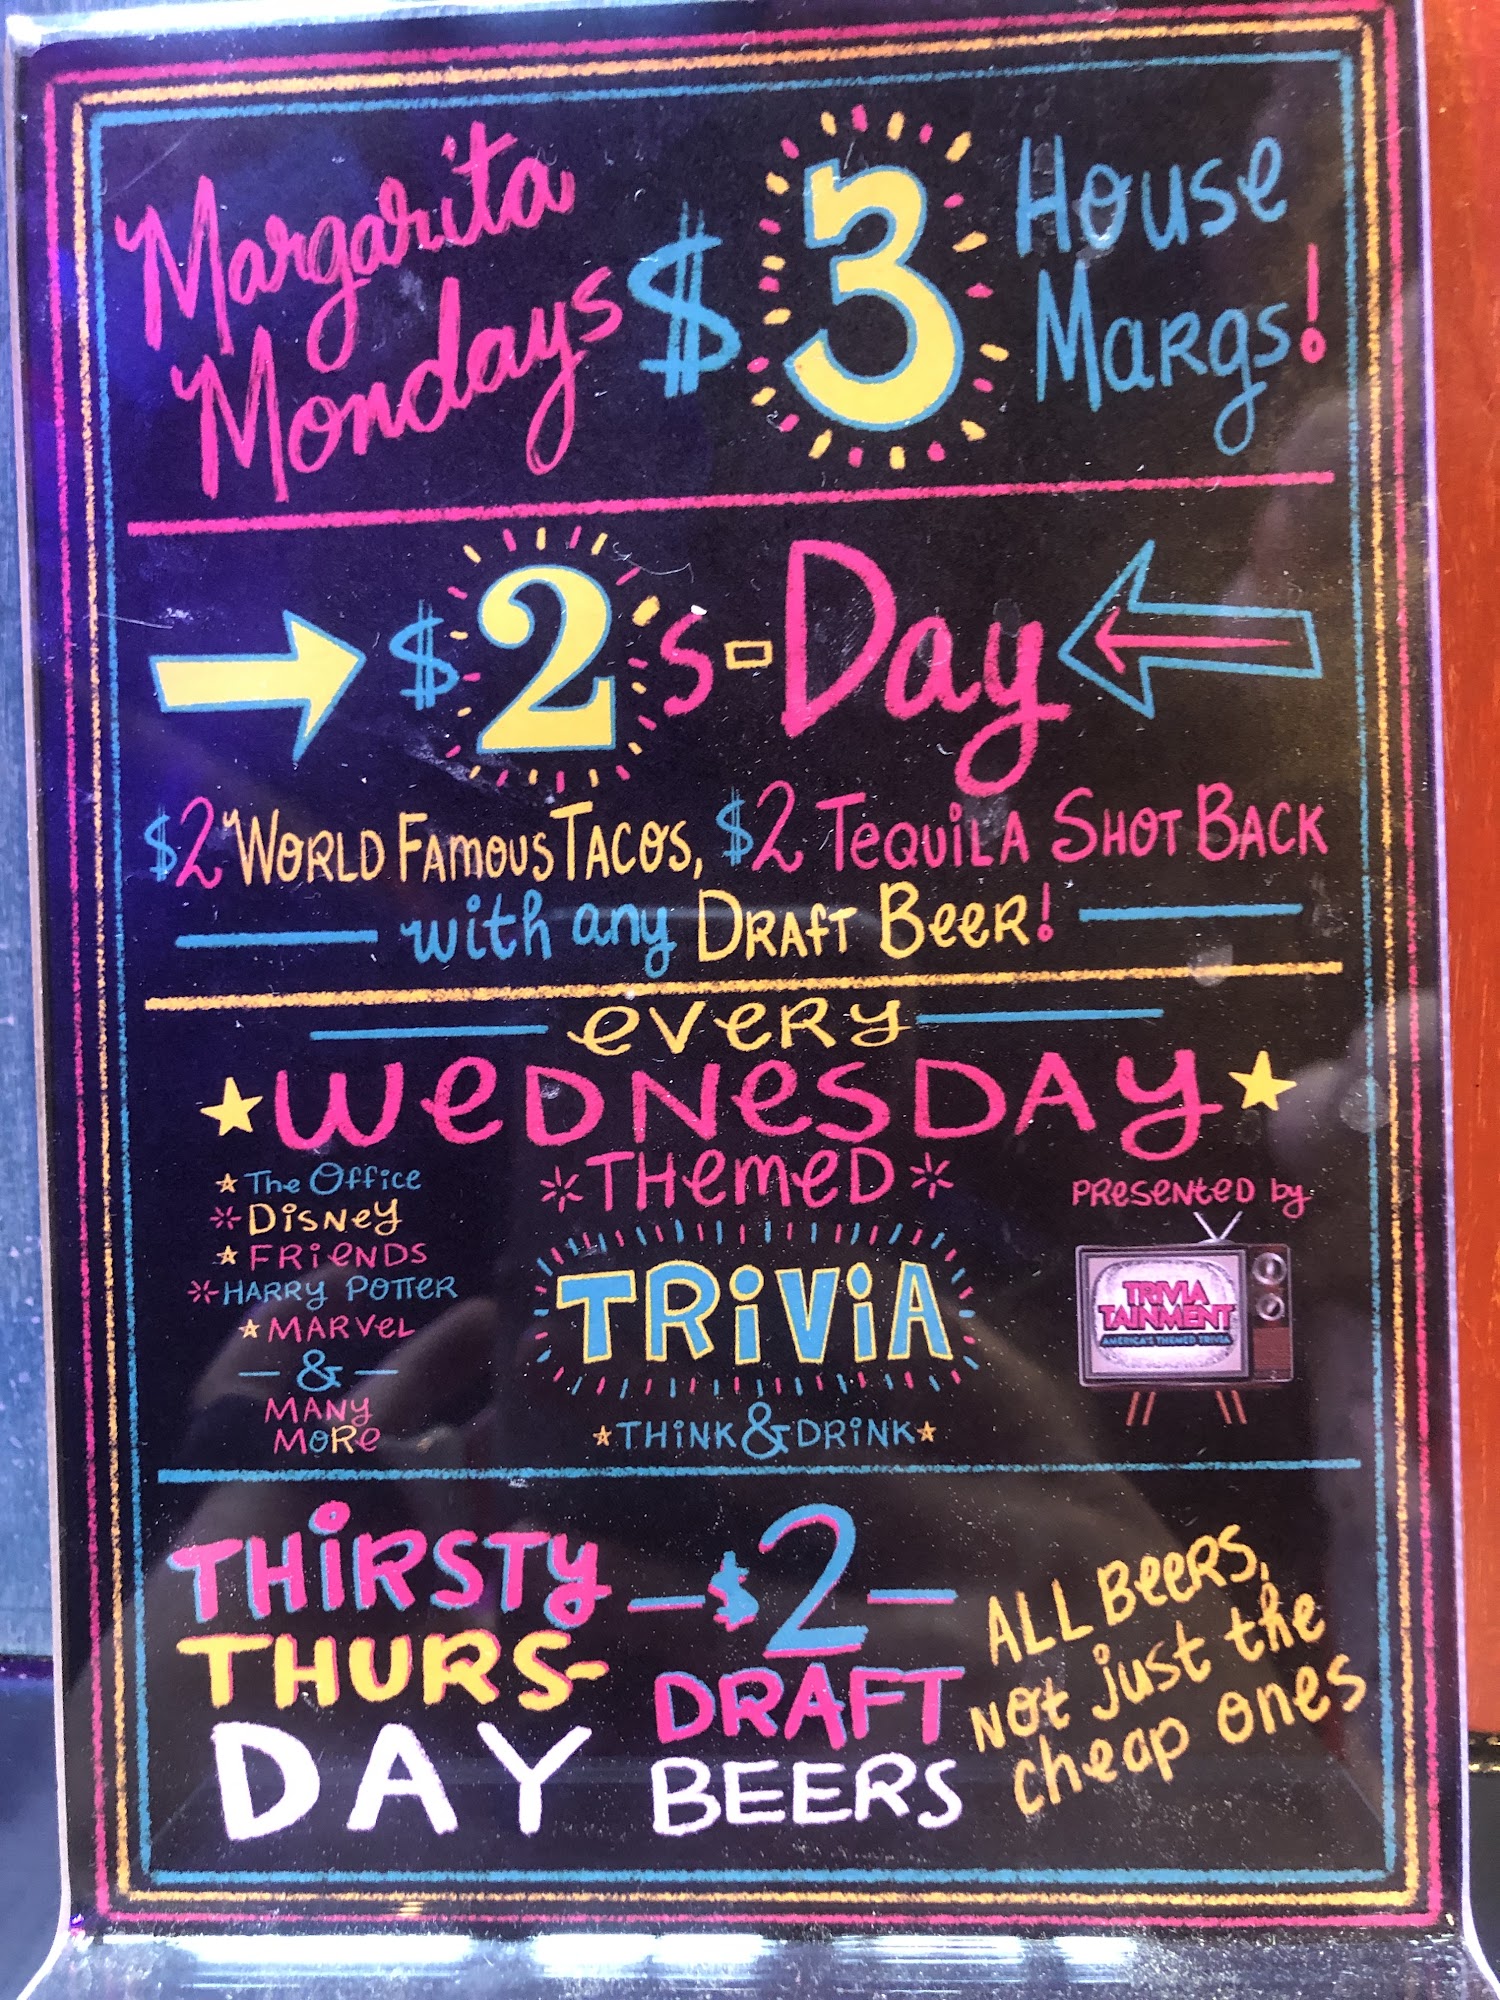 Margarita
Mondays
$3
House
Margs!
$2s-Day
$2 World Famous Tacos, $2 Tequila Shot Back
with any Draft Beer!
every
Wednesday
Themed
Trivia
Think & Drink
The Office
Disney
Friends
Harry Potter
Marvel
&
Many
More
Presented by
TRIVIA
TAINMENT
AMERICA'S THEMED TRIVIA
THIRSTY
THURS-
DAY
$2
DRAFT
BEERS
ALL Beers,
not just the
cheap ones